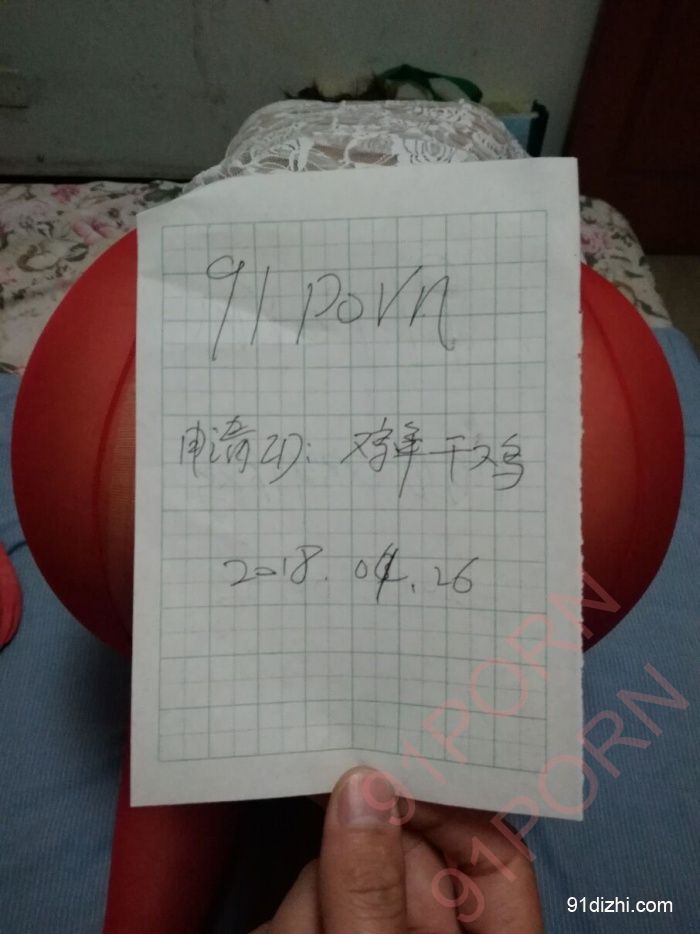 91 PoRn
申请ID: 鸡年干鸡
2018.04.26
91PORN
91PORN
91dizhi.com